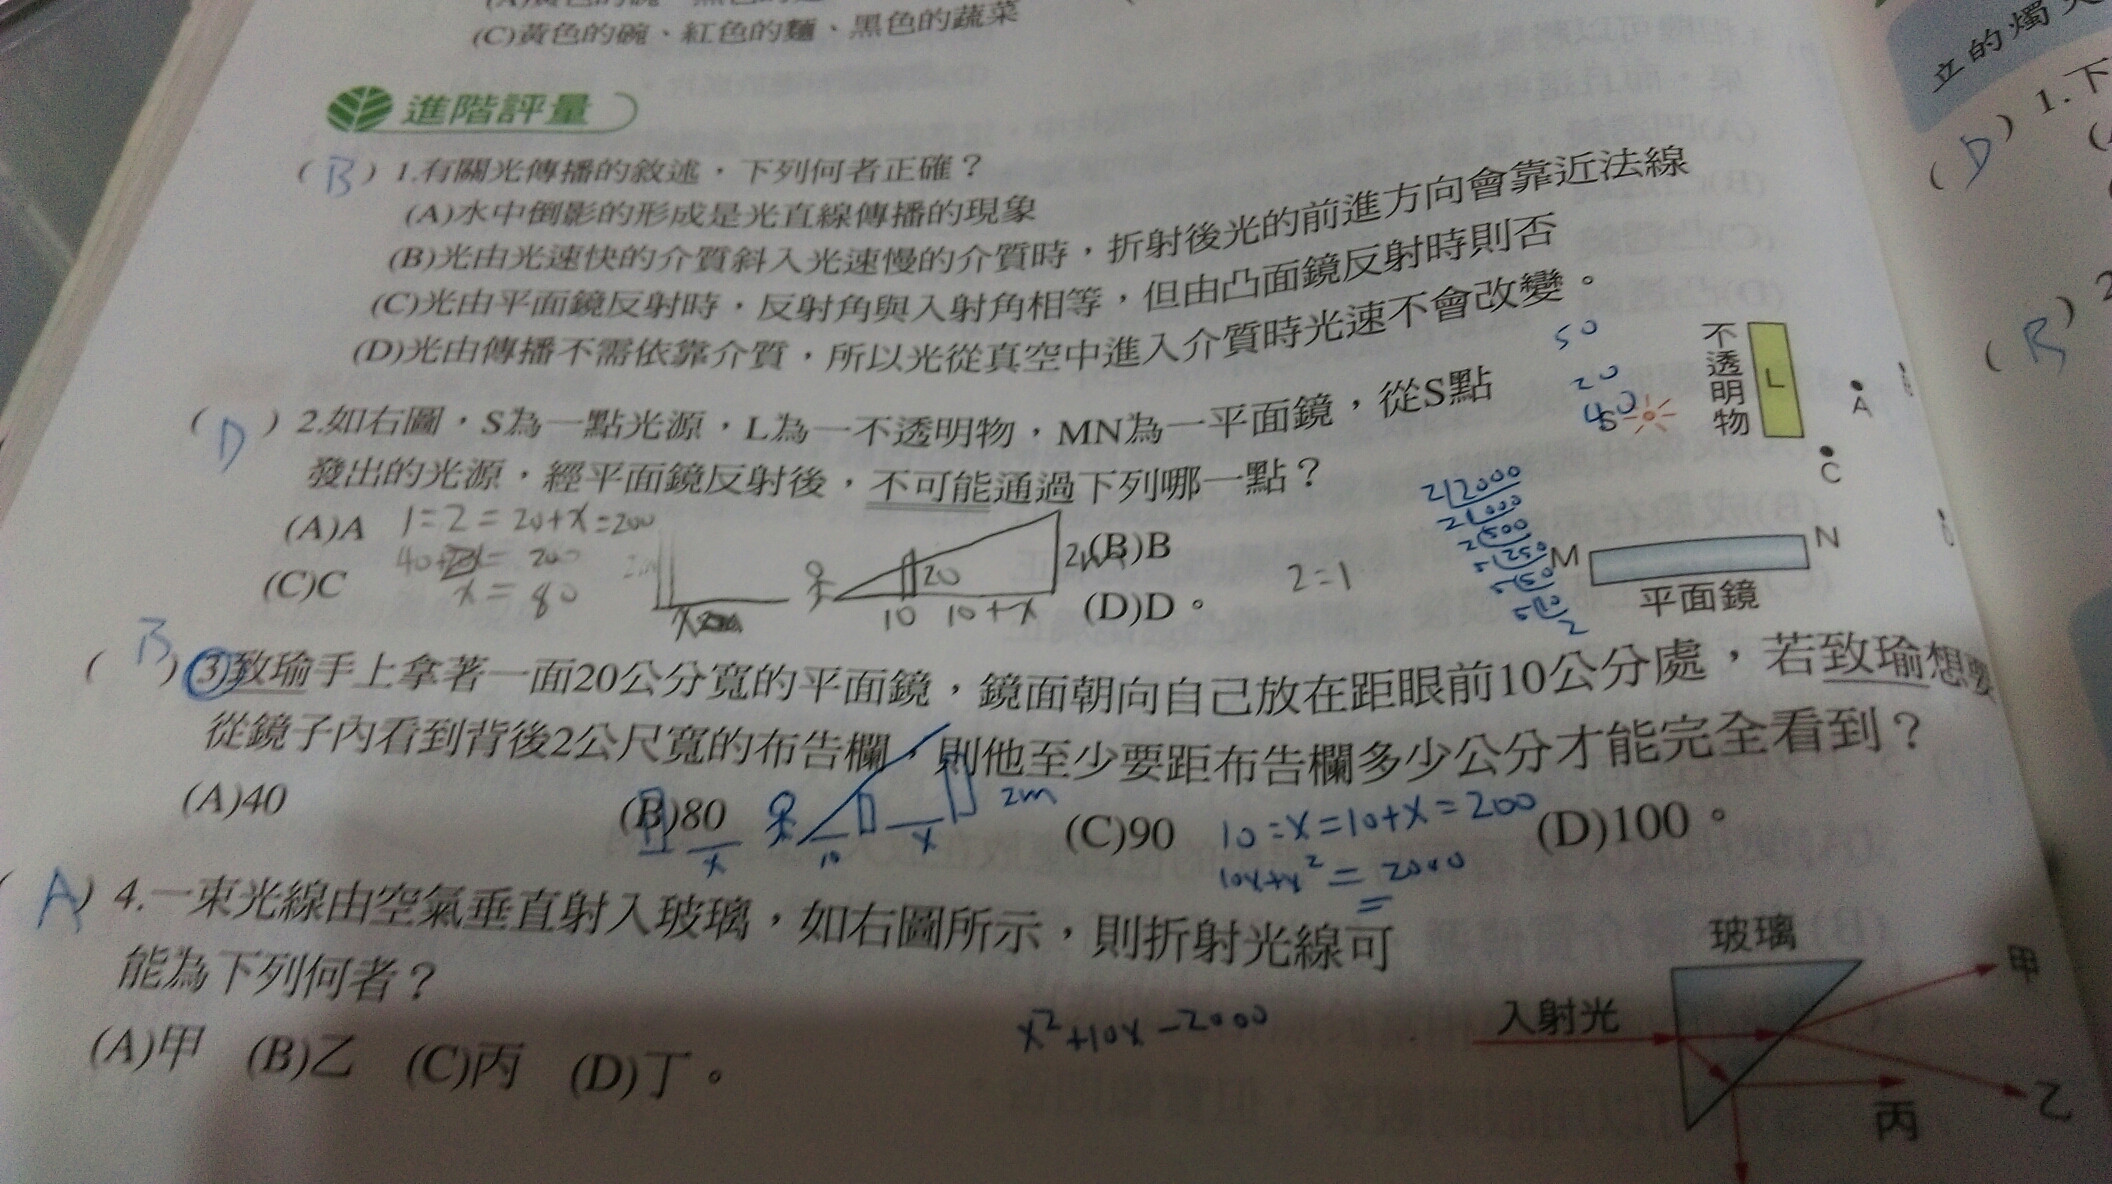 (C)黃色的碗、紅色的麵、黑色的蔬菜
進階評量
( B ) 1.有關光傳播的敘述，下列何者正確？
(A)水中倒影的形成是光直線傳播的現象
(B)光由光速快的介質斜入光速慢的介質時，折射後光的前進方向會靠近法線
(C)光由平面鏡反射時，反射角與入射角相等，但由凸面鏡反射時則否
(D)光由傳播不需依靠介質，所以光從真空中進入介質時光速不會改變。
( D ) 2.如右圖，S為一點光源，L為一不透明物，MN為一平面鏡，從S點
發出的光源，經平面鏡反射後，不可能通過下列哪一點？
(A)A
(B)B
(C)C
(D)D。
1=2=20+x=200
x=80
20
10 10+x
2=1
50
20
40
S
不透明物
L
A
C
M
N
平面鏡
2 2000
2 1000
2 500
250
50
10
2
( B ) 3.致瑜手上拿著一面20公分寬的平面鏡，鏡面朝向自己放在距眼前10公分處，若致瑜想要
從鏡子內看到背後2公尺寬的布告欄，則他至少要距布告欄多少公分才能完全看到？
(A)40
(B)80
(C)90
(D)100。
x
10
x
2m
10=x=10+x=200
10x+x²=2000
( A ) 4.一束光線由空氣垂直射入玻璃，如右圖所示，則折射光線可
能為下列何者？
(A)甲 (B)乙 (C)丙 (D)丁。
x²+10x-2000
玻璃
入射光
甲
乙
丙
立的燭
( D ) 1.下
( B ) 2